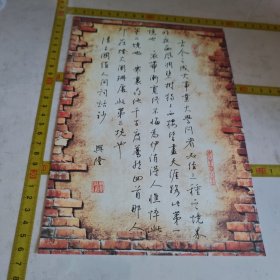 古今之成大事業大学问者必经三种之境界
昨夜西风凋碧树独上高楼望尽天涯路此第一
境也衣带渐宽终不悔为伊消得人憔悴此
第二境也众里寻他千百度蓦然回首那人
却在灯火阑珊处此第三境也
王国维人间词话